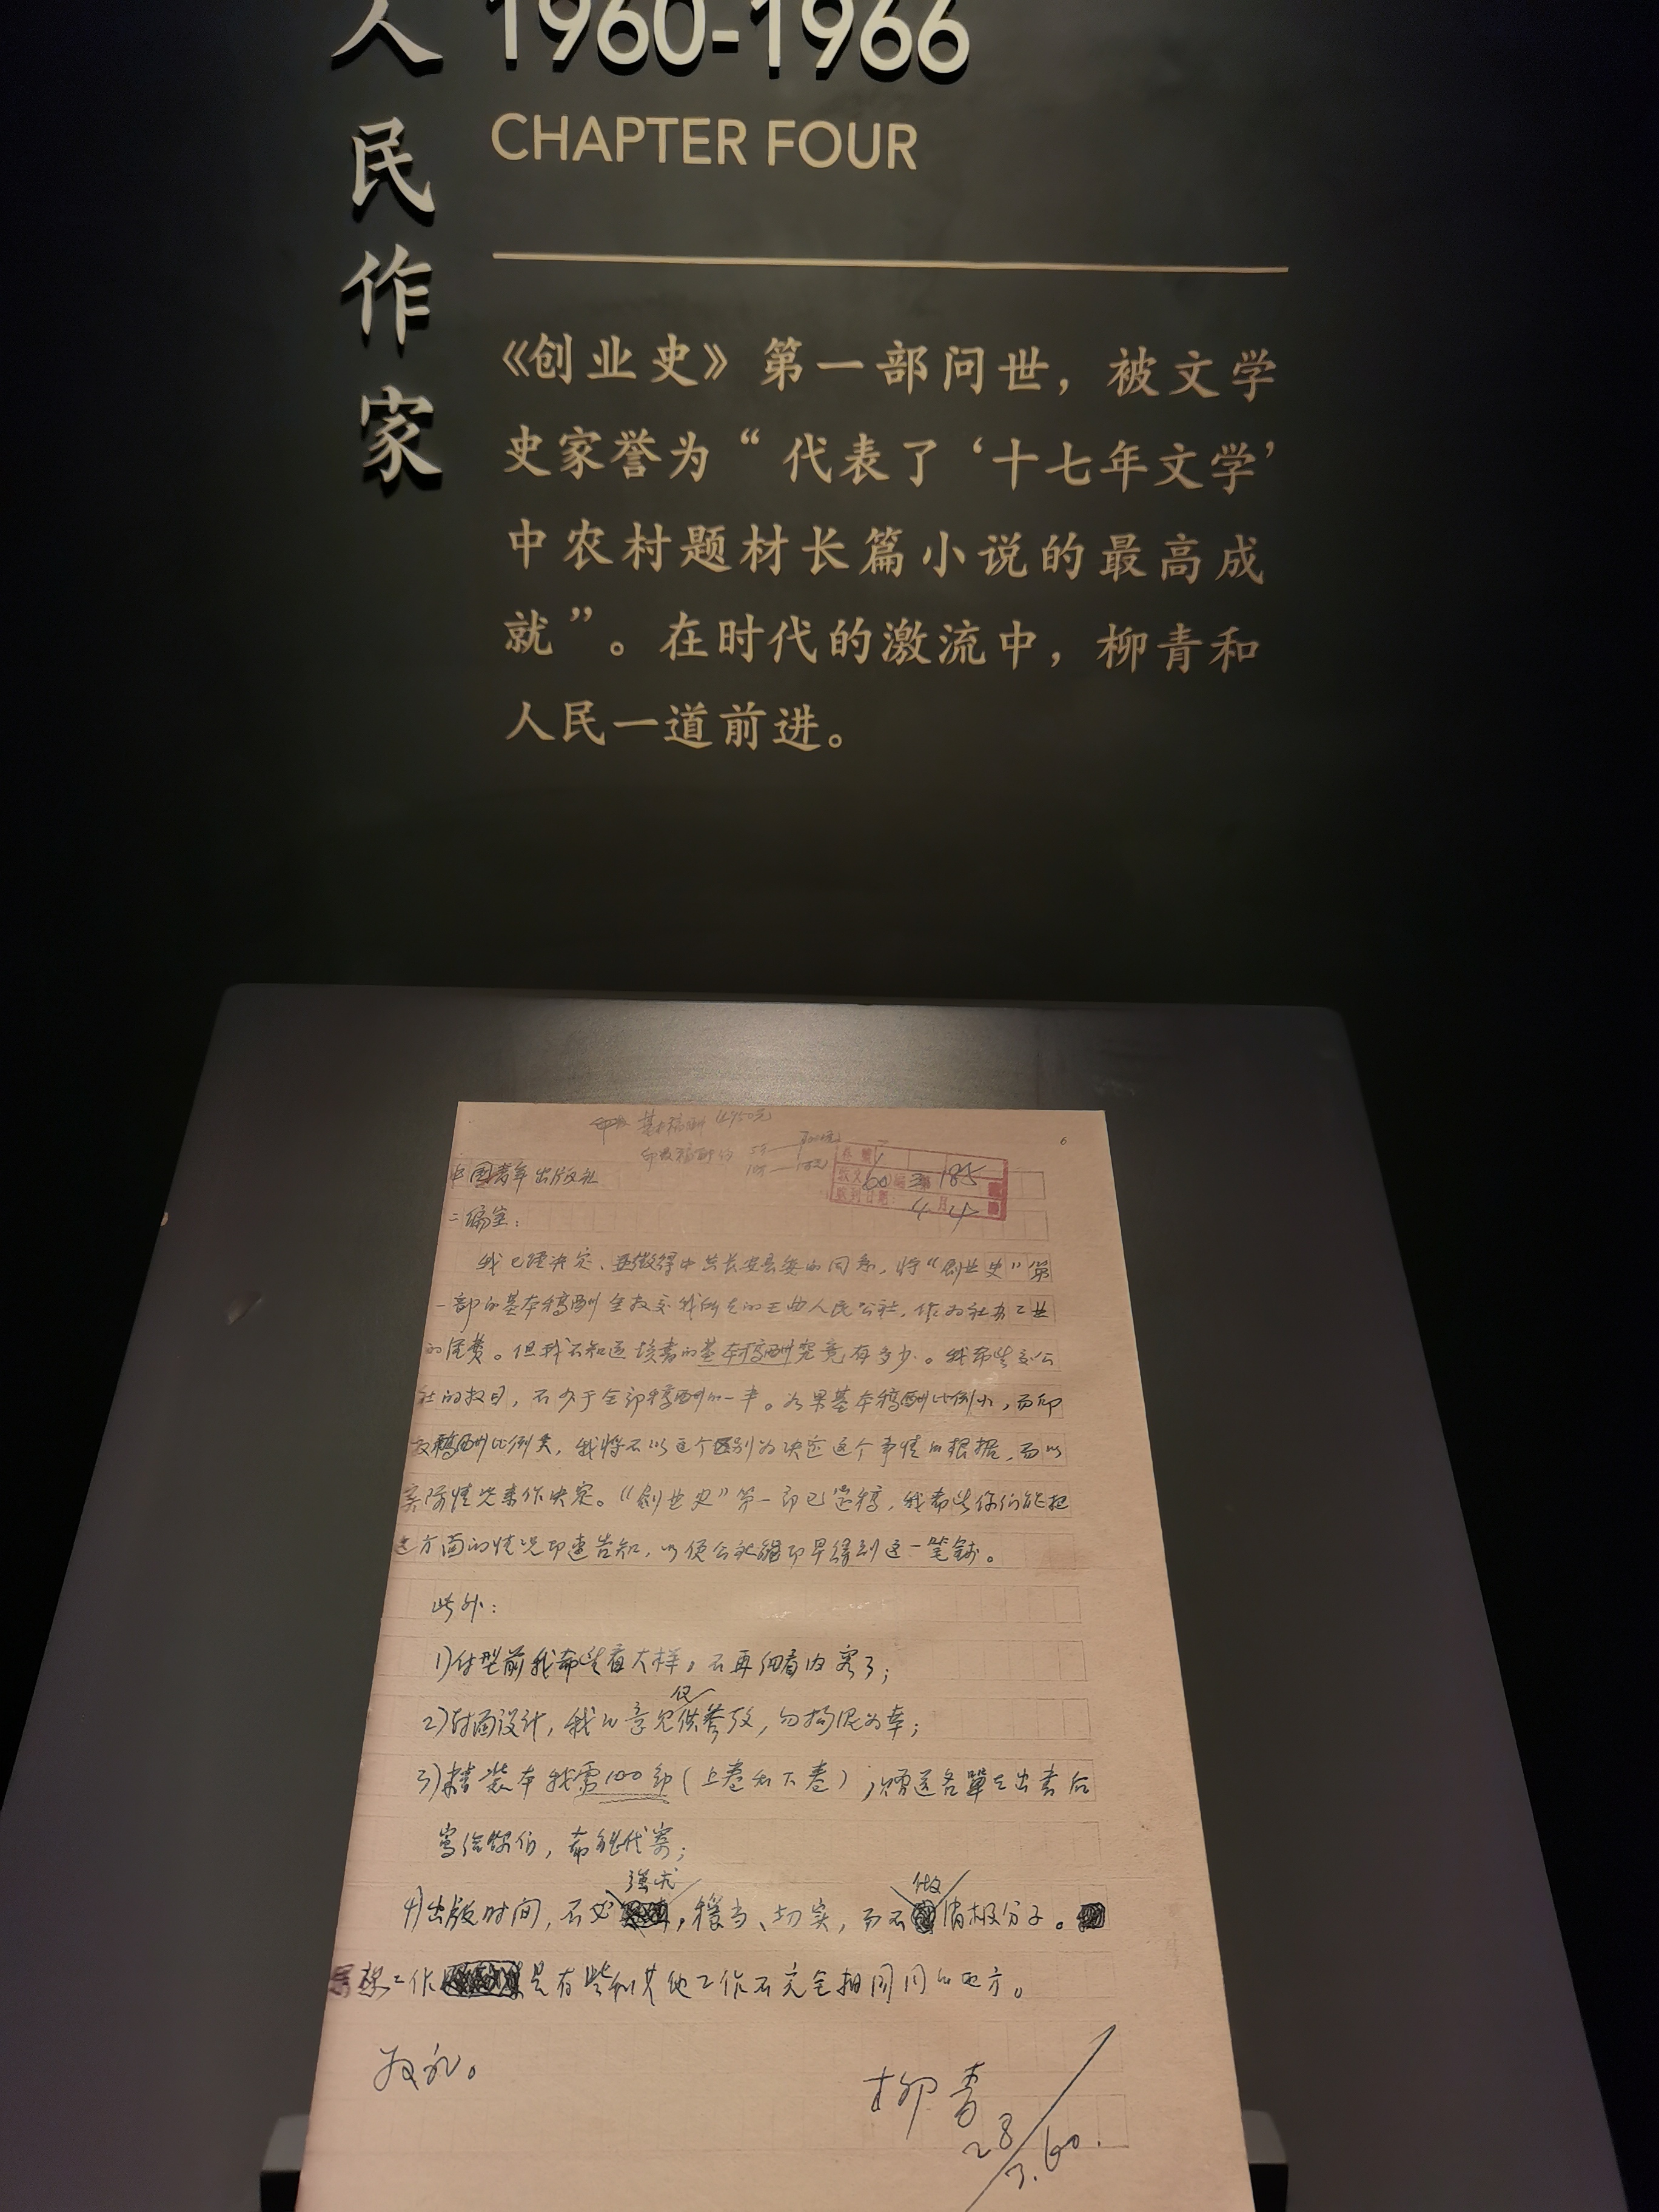 人民作家
1960-1966
CHAPTER FOUR
《创业史》第一部问世，被文学
史家誉为“代表了‘十七年文学’
中农村题材长篇小说的最高成
就”。在时代的激流中，柳青和
人民一道前进。
基本稿酬
6
中国青年出版社
二编室：
我已经决定、并征得中共长安县委的同意，将“创业史”第
一部的基本稿酬全数交我所在的王曲人民公社，作为社办工业
的。但我不知道该书的基本稿酬究竟有多少。我希望交公
社的数目，不少于全部稿酬的一半。如果基本稿酬比例小，而印
数稿酬比例大，我将不以这个区别为决定这个事情的根据，而以
实际情况来作决定。“创业史”第一部已定稿，我希望你们能把
这方面的情况即速告知，以便公社能即早得到这一笔钱。
此外：
1)付型前我希望看大样，不再细看内容了；
2)封面设计，我的意见仅供参考，勿拘泥为幸；
3)精装本我需100部（上卷和下卷）；赠送名單在出書后
寄给你们，希能代寄；
4)出版时间，不必强求，稳当、切实，而不做消极分子。
工作是有些和其他工作不完全相同的地方。
致礼。
柳青
28/3.60.